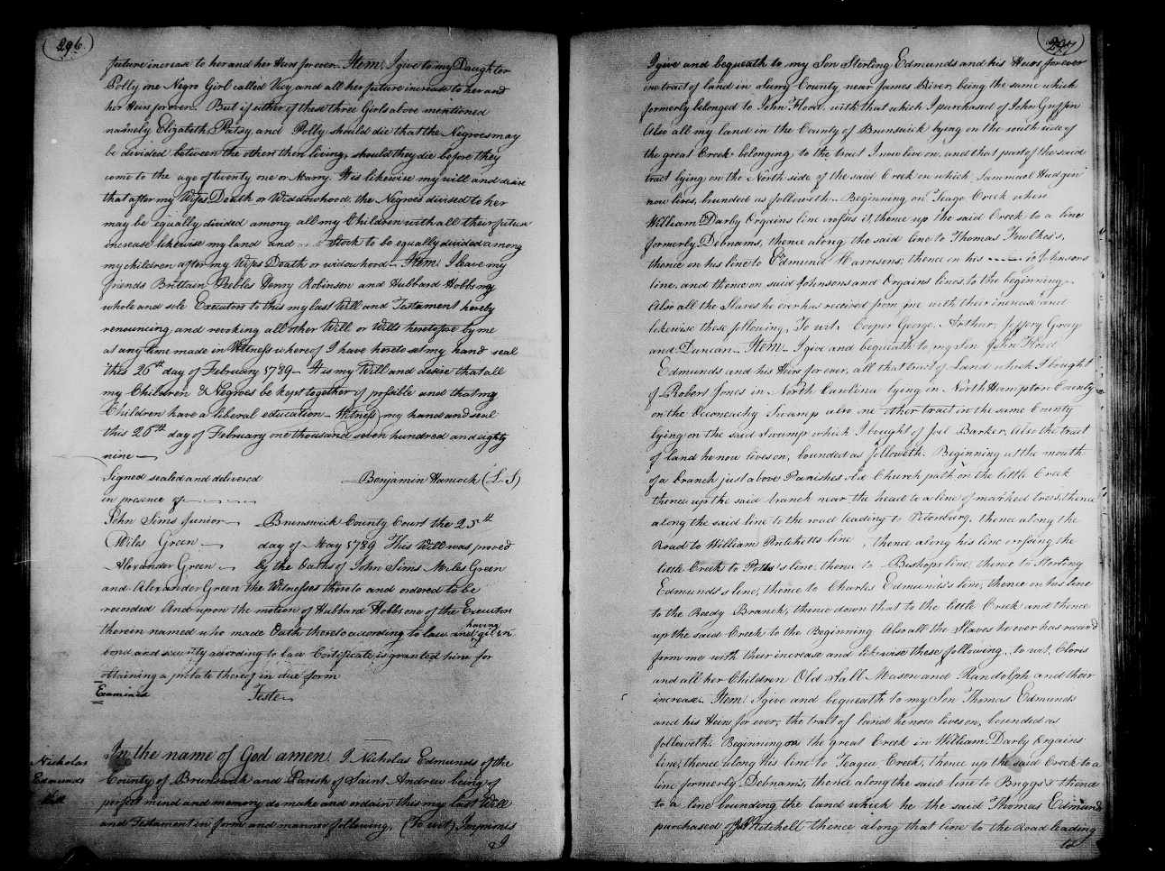 296
future increase to her and her Heirs forever. Item. I give to my Daughter
Polly one Negro Girl called Vicy and all her future increase to her and
her Heirs for ever. But if either of these three Girls above mentioned
namely Elizabeth, Patsy, and Polly should die that the Negroes may
be divided between the others then living, should they die before they
come to the age of twenty one or Marry. It is likewise my will and desire
that after my Wifes Death or Widdowhood, the Negroes devised to her
may be equally divided among all my Children with all their future
increase likewise my land and Stock to be equally divided among
my children after my Wifes Death or widowhood. Item. I leave my
friends Brittain Peebles Henry Robinson and Hubbard Hobbs my
whole and sole Executors to this my last Will and Testament hereby
renouncing, and revoking all other Will or Wills heretofore by me
at any time made in Witness whereof I have hereto set my hand seal
this 26th day of February 1789 - It is my Will and desire that all
my Children & Negroes be kept together if possible and that my
Children have a liberal education - Witness, my hand and seal
this 26th day of February one thousand seven hundred and eighty
nine -
Signed sealed and delivered Benjamin Hancock (L.S)
in presence of
John Sims Junior - Brunswick County Court the 25th
Miles Green - day of May 1789 This Will was proved
Alexander Green - by the Oaths of John Sims Miles Green
and Alexander Green the Witnesses thereto and ordered to be
recorded And upon the motion of Hubbard Hobbs one of the Executors
therein named who made Oath thereto according to law and having given
bond and security according to law Certificate is granted him for
obtaining a probate thereof in due form
Examined Teste
Nicholas
Edmunds
Will
In the name of God amen. I Nicholas Edmunds of the
County of Brunswick and Parish of Saint Andrew being of
perfect mind and memory do make and ordain this my last Will
and Testament in form and manner following, (To wit) Imprimis
I
297
I give and bequeath to my Son Sterling Edmunds and his Heirs forever
one tract of land in Surry County near James River, being the same which
formerly belonged to John Flood, with that which I purchased of John Griffin
Also all my land in the County of Brunswick lying on the south side of
the great Creek belonging, to the tract I now live on, and that part of the said
tract lying on the North side of the said Creek on which Sammuel Hudgen
now lives, bounded as followeth. Beginning on Teago Creek where
William Darby Orgains line crosses it thence up the said Creek to a line
formerly Debnams, thence along the said line to Thomas Fowlkes's,
thence on his line to Edmund Harrisons, thence on his to Johnsons
line, and thence on said Johnsons and Orgains lines, to the beginning.
Also all the Slaves he ever has received from me with their increase and
likewise these following, To wit, Cooper George, Arthur, Jeffery Gray
and Duncan. Item. I give and bequeath to my Son John Flood
Edmunds and his Heirs for ever, all that tract of Land which I bought
of Robert Jones in North Carolina lying in North Hampton County
on the Occoneachy Swamp also one other tract in the same County
lying on the said Swamp which I bought of Joel Barker, Also the tract
of land he now lives on, bounded as followeth. Beginning at the mouth
of a branch just above Parishes Church path on the little Creek
thence up the said branch near the head to a line of marked trees, thence
along the said line to the road leading to Petersburg, thence along the
Road to William line, thence along his line crossing the
little Creek to Potts's line, thence to Bishops line, thence to Sterling
Edmunds's line, thence to Charles Edmunds's line, thence on his line
to the Reedy Branch, thence down that to the little Creek and thence
up the said Creek to the Beginning Also all the Slaves he ever has received
from me with their increase and likewise these following, to wit, Cloris
and all her Children Old Hall Mason and Randolph and their
increase. Item. I give and bequeath to my Son Thomas Edmunds
and his Heirs for ever, the tract of land he now lives on, bounded as
followeth. Beginning on the great Creek in William Darby Orgains
line, thence along his line to Teague Creek, thence up the said Creek to a
line formerly Debnam's, thence along the said line to Briggs's thence
to a line bounding the land which he the said Thomas Edmunds
purchased of Mitchell thence along that line to the Road leading
to